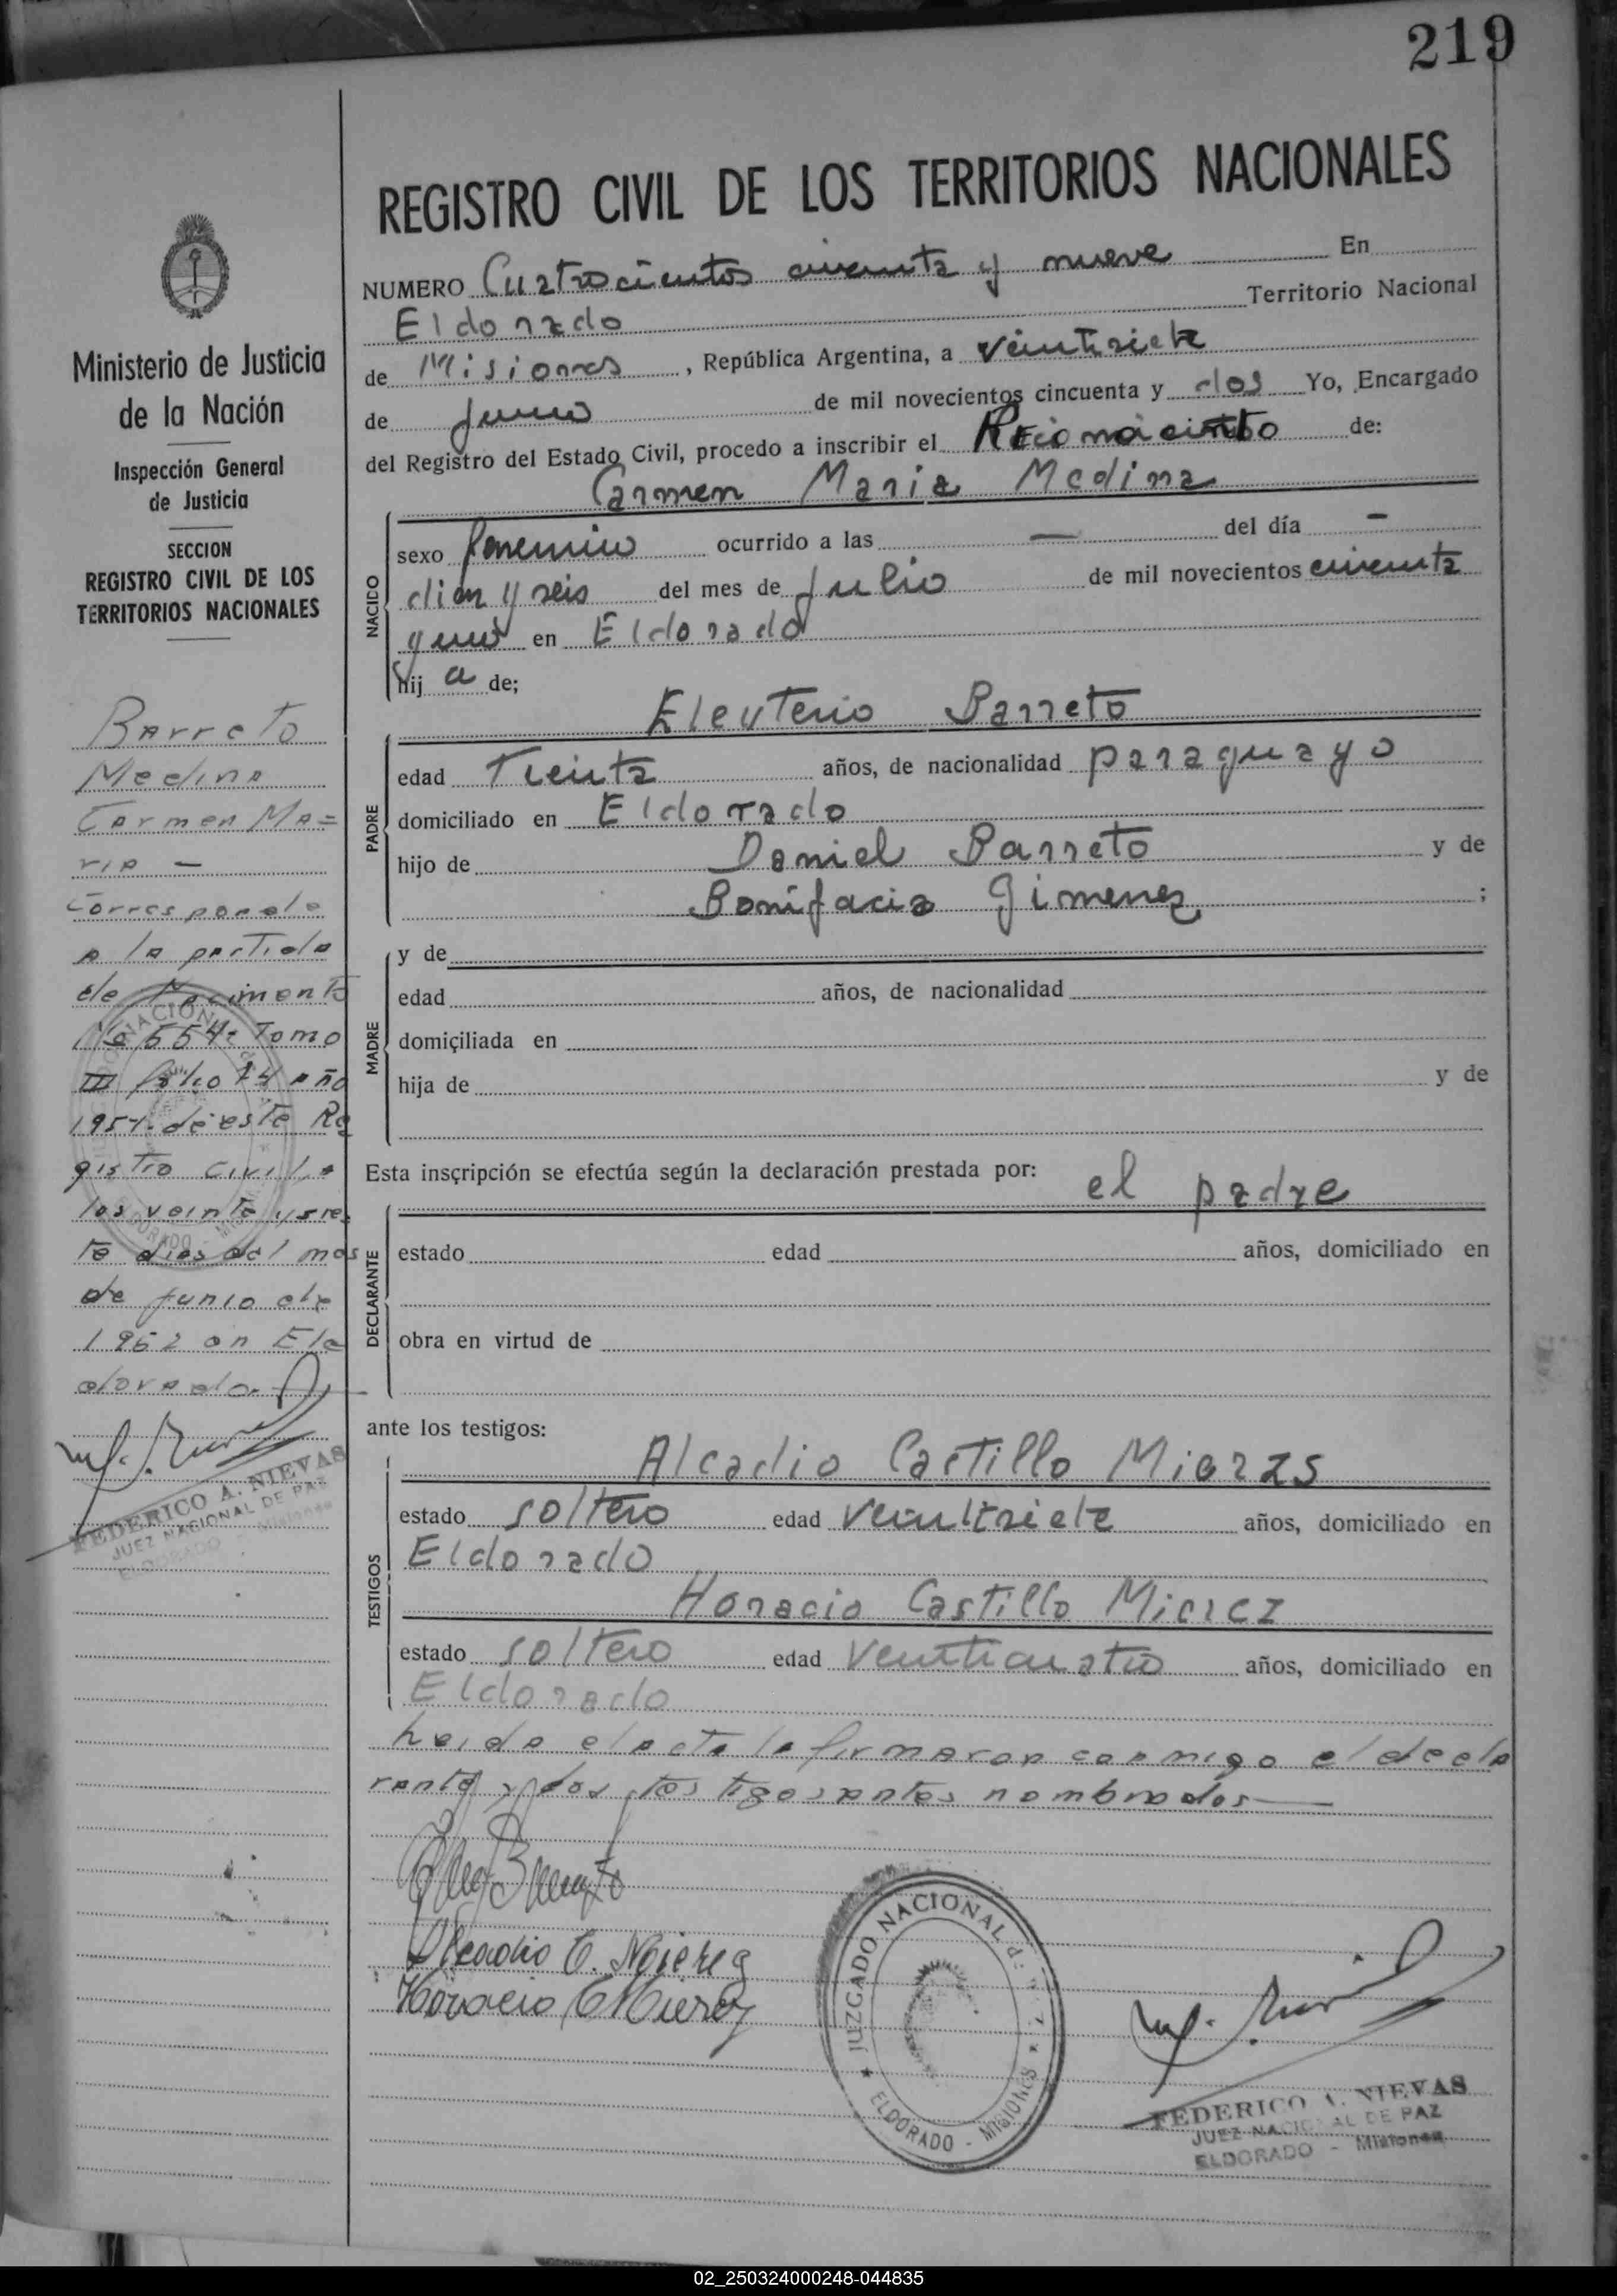 219
REGISTRO CIVIL DE LOS TERRITORIOS NACIONALES
NUMERO Cuatrocientos cincuenta y nueve En
Eldorado Territorio Nacional
de Misiones, República Argentina, a veintisiete
de junio de mil novecientos cincuenta y dos Yo, Encargado
del Registro del Estado Civil, procedo a inscribir el de:
Carmen Maria Medina
NACIDO
sexo femenino ocurrido a las — del día —
diez y seis del mes de Julio de mil novecientos cincuenta
y uno en Eldorado
hij a de;
Eleuterio Barreto
PADRE
edad Treinta años, de nacionalidad paraguayo
domiciliado en Eldorado
hijo de Daniel Barreto y de
Bonifacia Gimenez ;
MADRE
y de
edad años, de nacionalidad
domiciliada en
hija de y de
Esta inscripción se efectúa según la declaración prestada por:
el padre
DECLARANTE
estado edad años, domiciliado en
obra en virtud de
ante los testigos:
TESTIGOS
Alcadio Castillo
estado soltero edad veintisiete años, domiciliado en
Eldorado
Horacio Castillo Mierez
estado soltero edad veinticuatro años, domiciliado en
Eldorado
Leida el acta la firmaron conmigo el decla
rante y los testigos antes nombrados —
Alcadio C. Mierez
Horacio C Mierez
JUZGADO NACIONAL de PAZ
ELDORADO - MISIONES
FEDERICO A. NIEVAS
JUEZ NACIONAL DE PAZ
ELDORADO - Misiones
Ministerio de Justicia
de la Nación
Inspección General
de Justicia
SECCION
REGISTRO CIVIL DE LOS
TERRITORIOS NACIONALES
Barreto
Medina
Carmen Ma=
ria —
Corresponde
a la partida
de Nacimiento
No 554: Tomo
III folio año
1951 de este Re
gistro Civil a
los veinte y sie
te dias del mes
de junio de
1952 en El
dorado.
FEDERICO A. NIEVAS
JUEZ NACIONAL DE PAZ
ELDORADO - Misiones
02_250324000248-044835